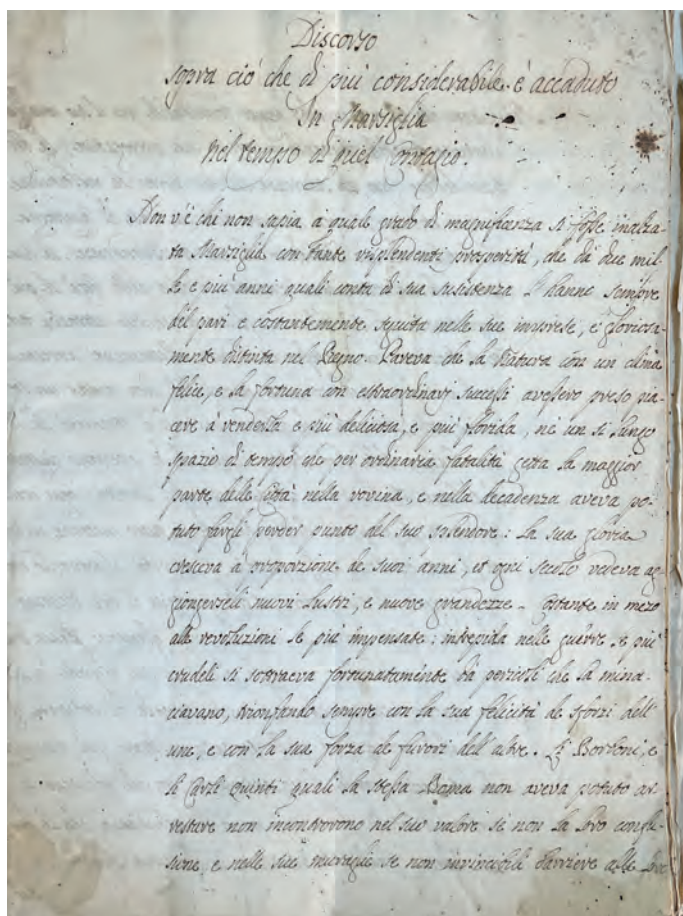 Discorso
sopra ciò che di più considerabile è accaduto
In Marsiglia
nel tempo di quel Contagio.
Non v'è chi non sapia à quale grado di magnificenza si fosse inalza-
ta Marsiglia con tante risplendenti prosperità, che dà due mil-
le e più anni quali conta di sua susistenza l'hanno sempre
del pari e costantemente seguita nelle sue imprese, e gloriosa-
mente distinta nel Regno. Pareva che la Natura con un clima
felice, e la fortuna con estraordinarj successi avessero preso pia-
cere à renderla e più deliciosa, e più florida, ne un si lungo
spazio di tempo che per ordinaria fatalità getta la maggior
parte delle Città nella rovina, e nella decadenza aveva po-
tuto fargli perder punto del suo splendore: La sua gloria
cresceva à proporzione de suoi anni, et ogni secolo vedeva ag-
giongerseli nuovi lustri, e nuove grandezze. Costante in mezo
alle revoluzioni le più impensate: intrepida nelle guerre le più
crudeli si sottraeva fortunatamente dà pericoli che la mina-
ciavano, trionfando sempre con la sua felicità de sforzi dell'
une, e con la sua forza de furori dell'altre. Li Borboni, e
li Carli quinti quali la stessa Roma non aveva potuto ar-
restare non incontrorono nel suo valore se non la loro confu-
sione, e nelle sue muraglie se non invincibili barriere alle loro